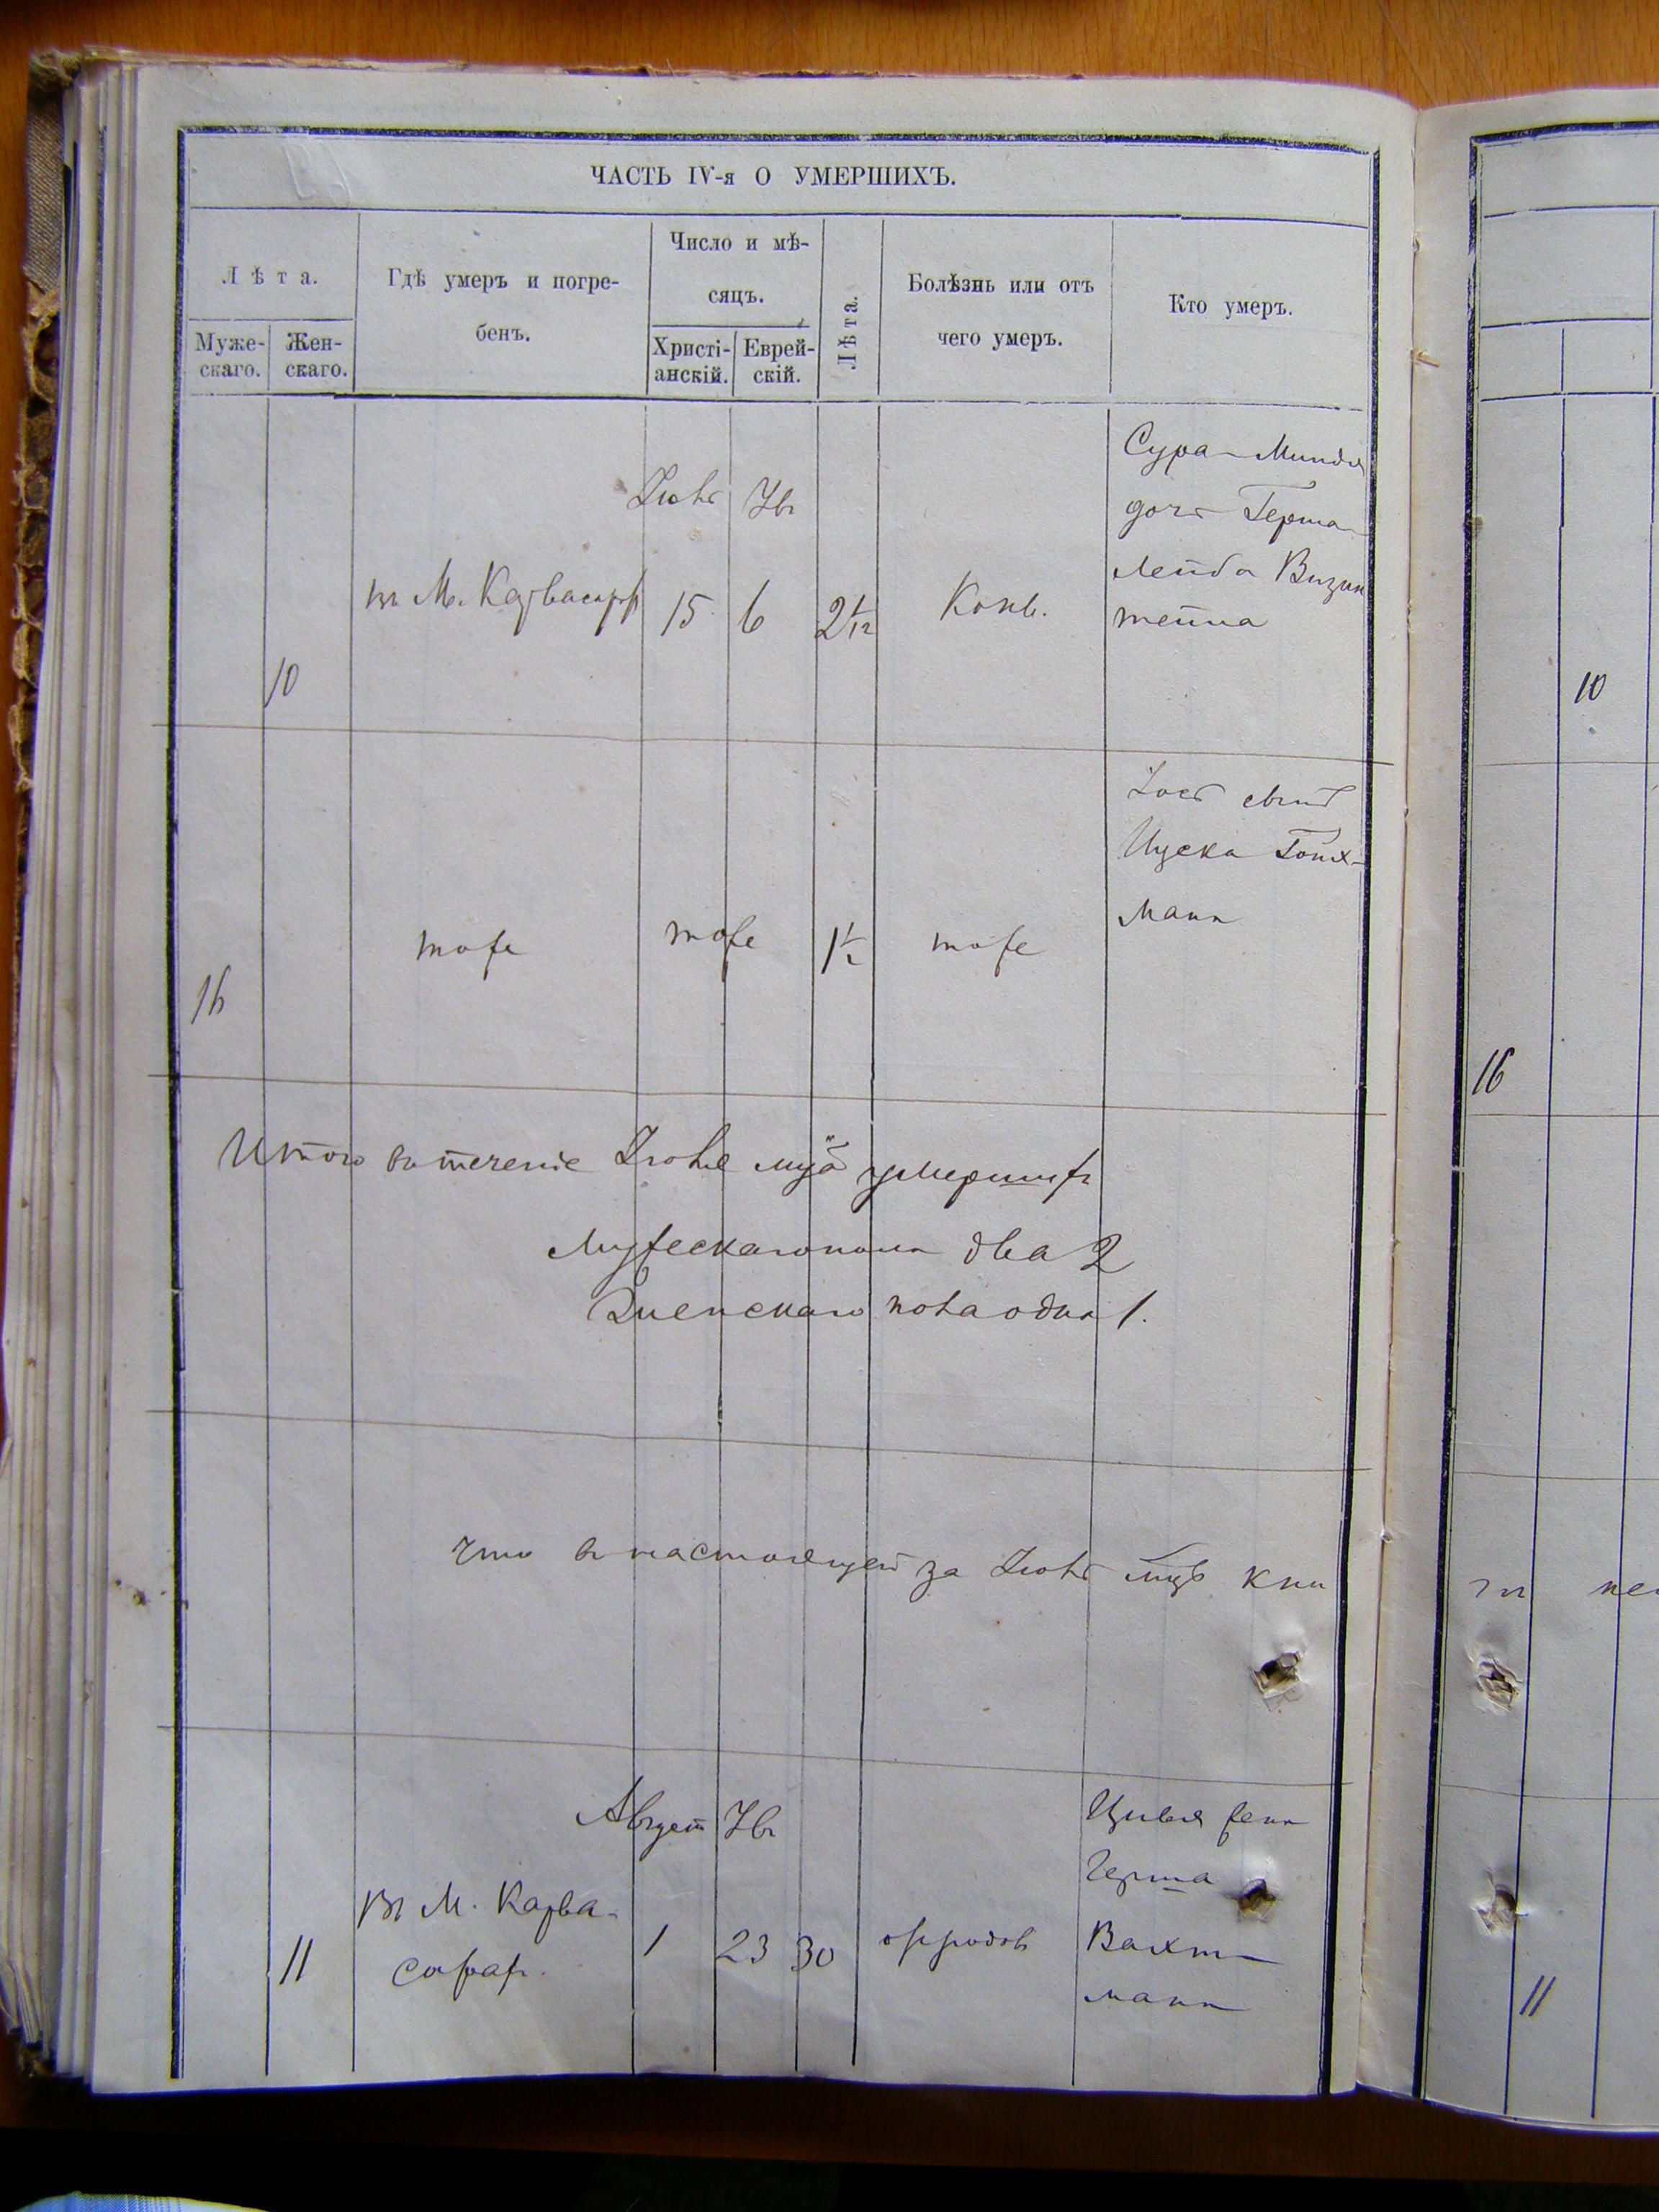 ЧАСТЬ IV-я О УМЕРШИХЪ.
Лѣта.
Муже-
скаго.
Жен-
скаго.
Гдѣ умеръ и погре-
бенъ.
Число и мѣ-
сяцъ.
Христі-
анскій.
Еврей-
скій.
Лѣта.
Болѣзнь или отъ
чего умеръ.
Кто умеръ.
10
въ М.
Іюль
15
6
2 1/12
Конв.
Сура Миндля
дочь Герша
Лейба
16
тоже
тоже
1 1/2
тоже
Іось сынъ
Ицека
ман
Итого въ теченіе Іюля умершихъ
Мужескаго пола два 2
Женскаго пола одна 1.
Что в настоящей за Іюль мцъ кни
11
въ М. Карва-
сарахъ.
Августъ
1
23
30
отъ родовъ
Цивья жена
Герша
Вахт-
мана
10
16
11